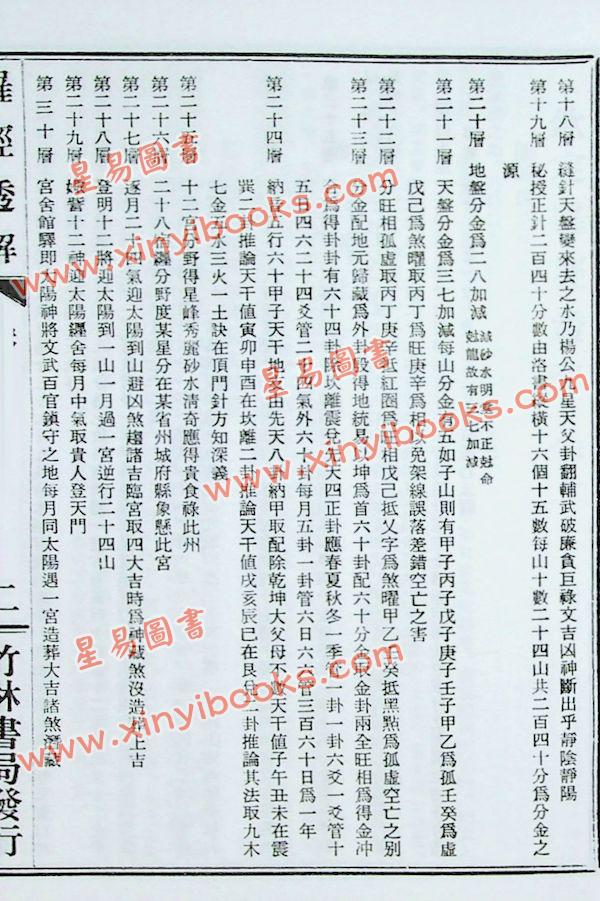 第十八層　縫針天盤變來去之水乃楊公九星天父卦翻輔武破廉貪巨祿文吉凶神斷出乎靜陰靜陽
第十九層　秘授正針二百四十分數由洛書縱橫十六個十五數每山十數二十四山共二百四十分爲分金之
源
第二十層　地盤分金爲二八加減
減砂水明
不正尅命
尅龍故有三七加減
第二十一層　天盤分金爲三七加減每山分金有五如子山則有甲子丙子戊子庚子壬子甲乙爲孤壬癸爲虛
戊己爲煞曜取丙丁爲旺庚辛爲相以免架線誤落差錯空亡之害
第二十二層　分旺相孤虛取丙丁庚辛抵紅圈爲旺相戊己抵乂字爲煞曜甲乙壬癸抵黑點爲孤虛空亡之別
第二十三層　分金配地元歸藏爲外卦毀得地統易以坤爲首六十卦配六十分金取金卦兩全旺相爲得金冲
合爲得卦卦有六十四卦除坎離震兌先天四正卦應春夏秋冬一季管一卦一卦六爻一爻管十
五日四六二十四爻管二十四氣外六十卦每月五卦一卦管六日六六管三百六十日爲一年
第二十四層　納音五行六十甲子天干地支由先天八卦納甲取配除乾坤大父母不數天干值子午丑未在震
巽二卦推論天干值寅卯申酉在坎離二卦推論天干值戌亥辰巳在艮兌二卦推論其法取九木
七金五水三火一土訣在頂門針方知深義
第二十五層　十二宮分野得某星峰秀麗砂水清奇應得貴食祿此州
第二十六層　二十八宿纏分野度某星分在某省州城府縣象懸此宮
第二十七層　逐月二十四氣迎太陽到山避凶煞趨諸吉臨宮取四大吉時爲神藏煞沒造葬上吉
第二十八層　登明十二將迎太陽到一山一月過一宮逆行二十四山
第二十九層　娵訾十二神迎太陽纏舍每月中氣取貴人登天門
第三十層　宮舍館驛即太陽神將文武百官鎮守之地每月同太陽遇一宮造葬大吉諸煞潛藏
羅經透解
二
竹林書局發行
星易圖書
www.xinyibooks.com
星易圖書
www.xinyibooks.com
星易圖書
www.xinyibooks.com
星易圖書
www.xinyibooks.com